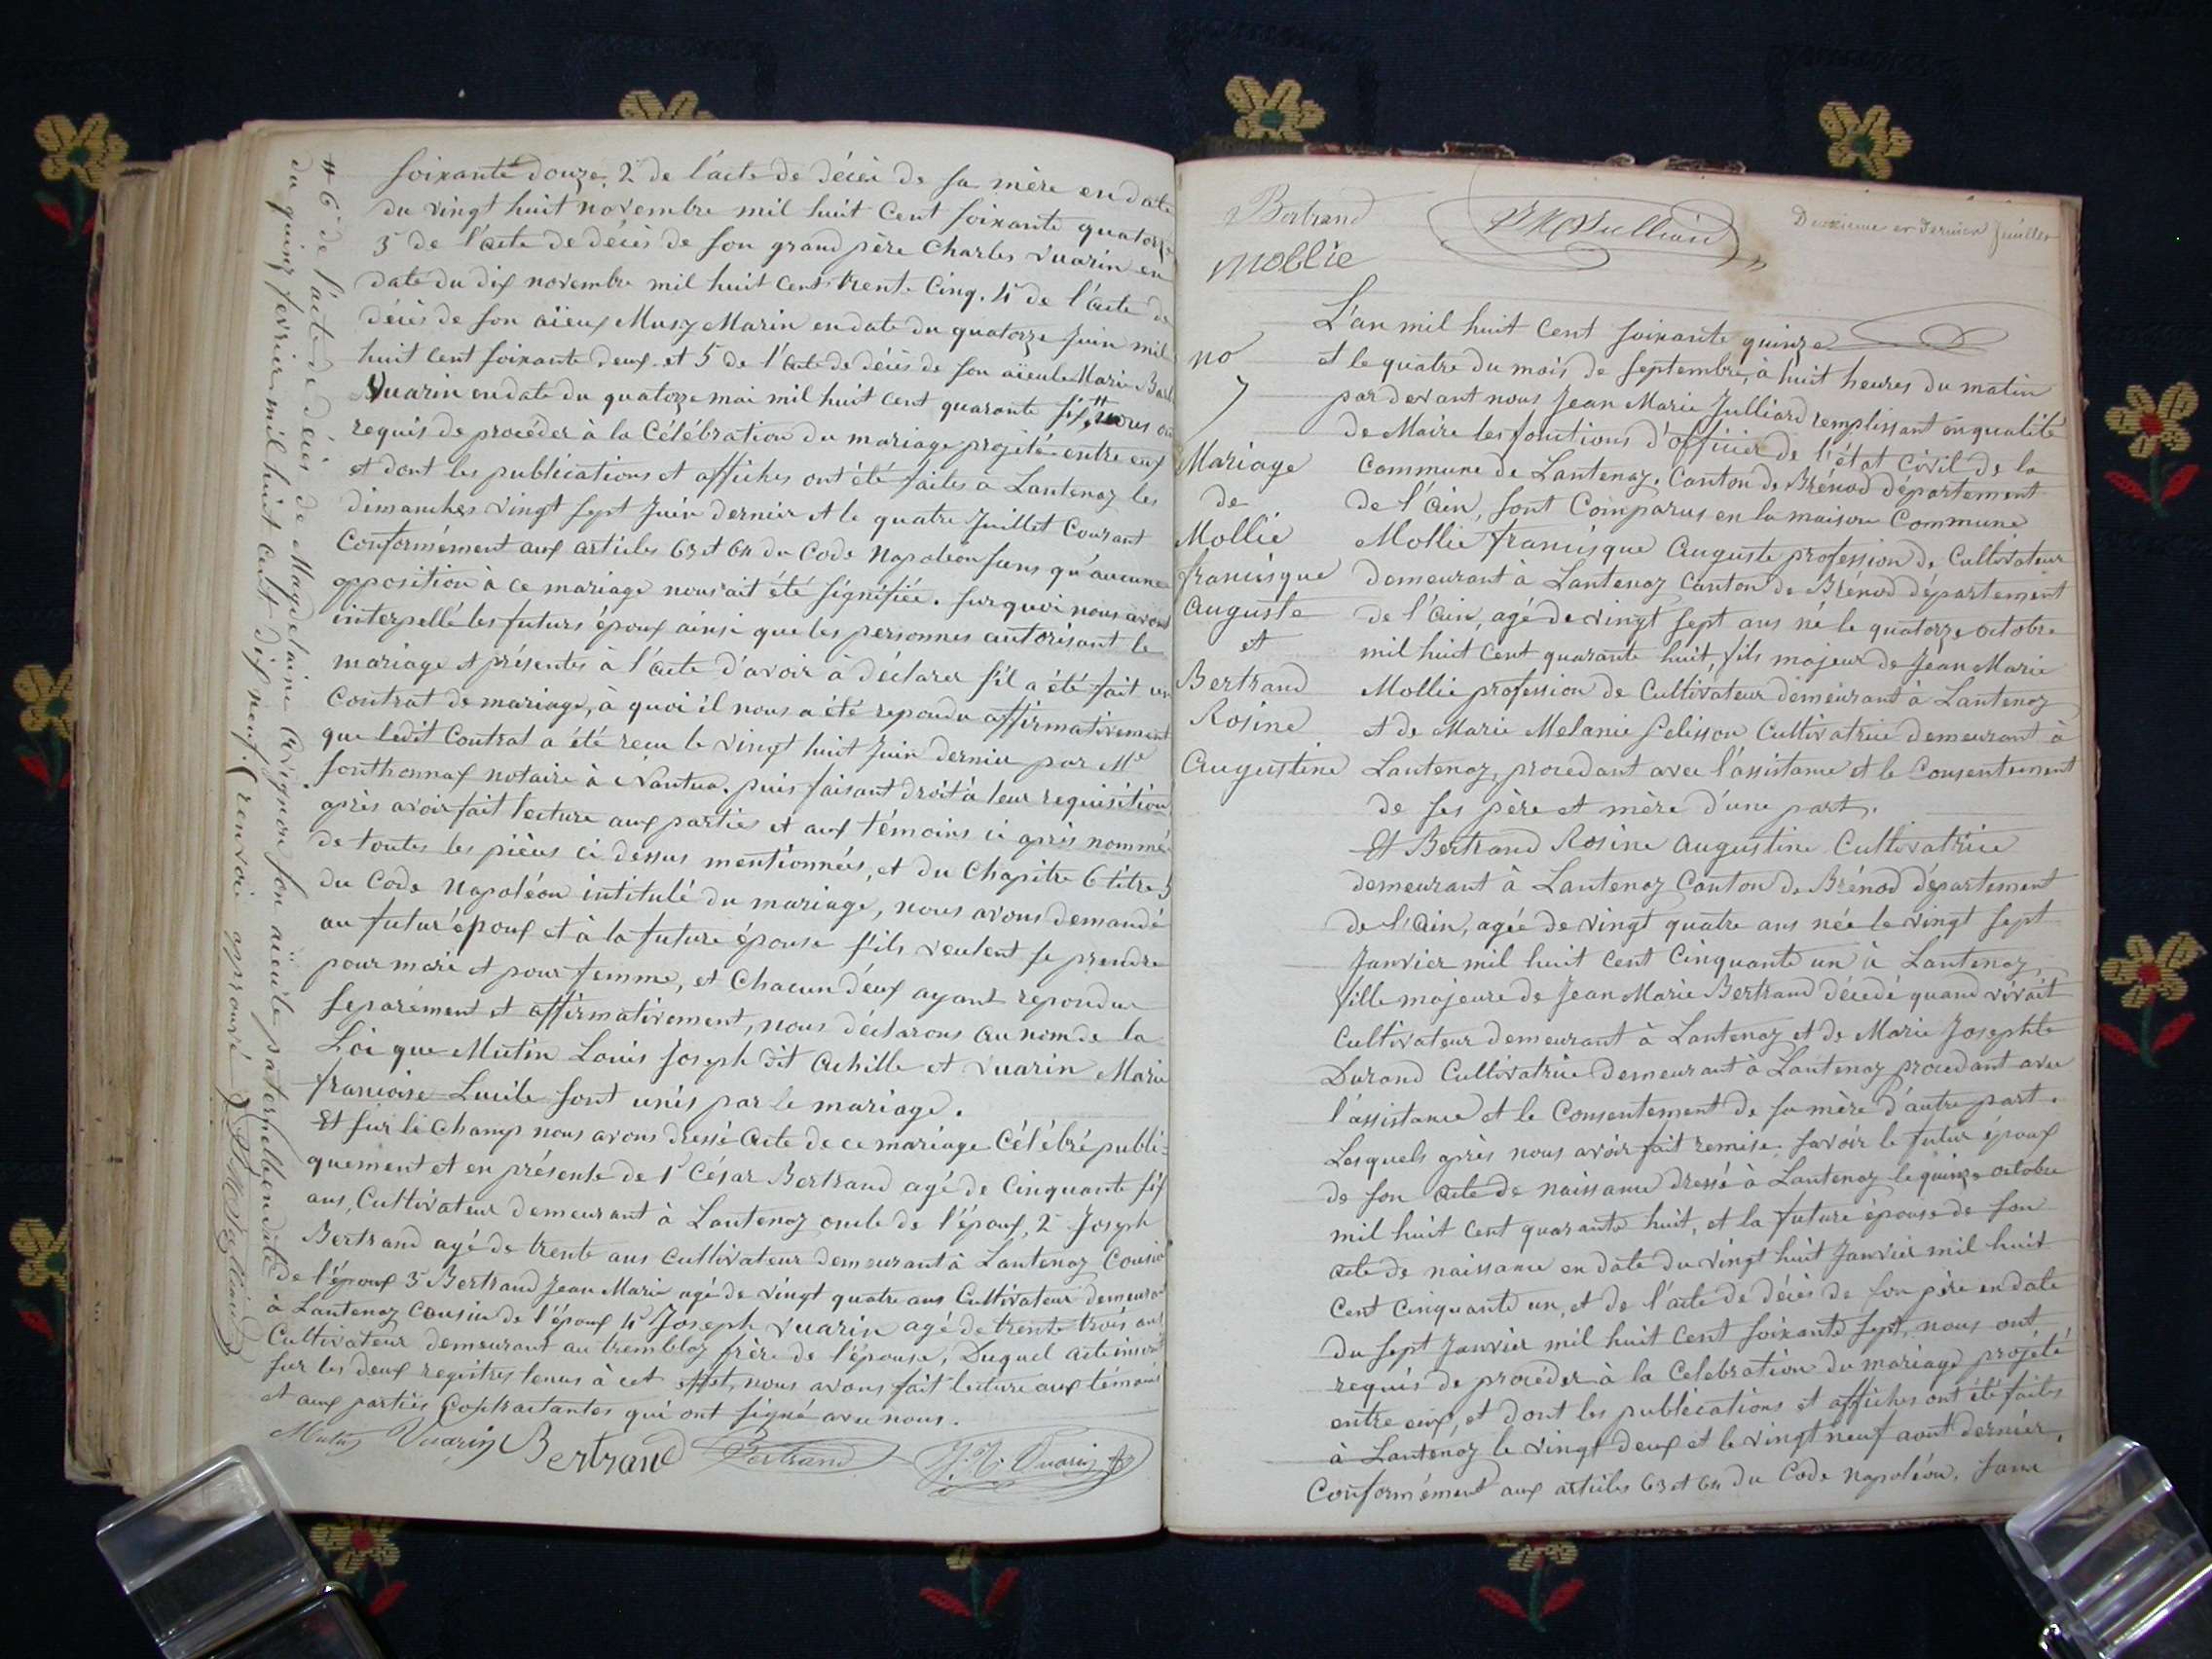 soixante douze, 2° de l'acte de décès de sa mère en date
du vingt huit novembre mil huit cent soixante quatorze
3° de l'acte de décès de son grand père Charles Vuarin en
date du dix novembre mil huit cent trente cinq. 4° de l'acte de
décès de son aïeux Musy Marin en date du quatorze Juin mil
huit cent soixante deux et 5° de l'acte de décès de son aïeule Marie
Vuarin en date du quatorze mai mil huit cent quarante six, # nous on
requis de procéder à la Célébration du mariage projeté entre eux
et dont les publications et affiches ont été faites à Lantenay les
dimanches vingt sept Juin dernier et le quatre Juillet Courant
Conformément aux articles 63 et 64 du Code Napoléon sans qu'aucune
opposition à ce mariage nous ait été signifiée. sur quoi nous avons
interpellé les futurs époux ainsi que les personnes autorisant le
mariage et présentes à l'acte d'avoir à déclarer s'il a été fait un
Contrat de mariage, à quoi il nous a été repondu affirmativement
que ledit Contrat a été recu le vingt huit Juin dernier par Me
fonthonnax notaire à Nantua. puis faisant droit à leur requisition
après avoir fait lecture aux parties et aux témoins ci après nommé
de toutes les pièces ci dessus mentionnées, et du Chapitre 6 titre 5
du Code Napoléon intitulé du mariage, nous avons demandé
au futur époux et à la future épouse s'ils veulent se prendre
pour mari et pour femme, et Chacun d'eux ayant repondu
separément et affirmativement, nous déclarons au nom de la
Loi que Mutin Louis Joseph dit Achille et Vuarin Marie
francoise Lucile sont unis par le mariage.
Et sur le Champ nous avons dressé Acte de ce mariage Célébré publi-
quement et en présente de 1° César Bertrand agé de Cinquante six
ans, Cultivateur demeurant à Lantenay oncle de l'époux, 2° Joseph
Bertrand agé de trente ans cultivateur demeurant à Lantenay Cousin
de l'époux 3° Bertrand Jean Marie agé de vingt quatre ans Cultivateur demeurant
à Lantenay Cousin de l'époux 4° Joseph Vuarin agé de trente trois ans
Cultivateur demeurant au trembloy frère de l'épouse, Duquel acte inscrit
sur les deux registres tenus à cet effet, nous avons fait lecture aux témoins
et aux parties Contractantes qui ont signé avec nous.
Mutin Vuarin Bertrand Bertrand J. M. Vuarin
# 6° de l'acte de décès de Magdelaine Avignon son aïeule paternelle en date
du quinze fevrier mil huit cent dix neuf. ( renvoi approuvé )
Bertrand
Mollie
J M Julliard
Deuxieme et Dernier feuillet
no
7
Mariage
de
Mollie
francisque
Auguste
et
Bertrand
Rosine
Augustine
L'an mil huit Cent soixante quinze
et le quatre du mois de septembre, à huit heures du matin
par devant nous Jean Marie Julliard remplissant en qualité
de Maire les fonctions d'officier de l'état Civil de la
Commune de Lantenay, Canton de Brénod département
de l'Ain, sont Comparus en la maison Commune
Mollie francisque Auguste profession de Cultivateur
demeurant à Lantenay Canton de Brénod département
de l'Ain, agé de vingt sept ans né le quatorze octobre
mil huit Cent quarante huit, fils majeur de Jean Marie
Mollie profession de Cultivateur demeurant à Lantenay
et de Marie Melanie Pelisson Cultivatrice demeurant à
Lantenay, procedant avec l'assistance et le Consentement
de ses père et mère d'une part.
Et Bertrand Rosine Augustine Cultivatrice
demeurant à Lantenay Canton de Brénod département
de l'Ain, agée de vingt quatre ans née le vingt sept
Janvier mil huit Cent Cinquante un à Lantenay,
fille majeure de Jean Marie Bertrand décedé quand vivait
Cultivateur demeurant à Lantenay et de Marie Josephte
Durand Cultivatrice demeurant à Lantenay procedant avec
l'assistance et le Consentement de sa mère d'autre part.
Lesquels après nous avoir fait remise, savoir le futur époux
de son acte de naissance dressé à Lantenay le quinze octobre
mil huit Cent quarante huit, et la future épouse de son
acte de naissance en date du vingt huit Janvier mil huit
Cent Cinquante un, et de l'acte de décès de son père en date
du sept Janvier mil huit Cent soixante sept, nous ont
requis de procéder à la Celebration du mariage projeté
entre eux, et dont les publications et affiches ont été faites
à Lantenay le vingt deux et le vingt neuf aout dernier.
Conformément aux articles 63 et 64 du Code Napoléon, sans